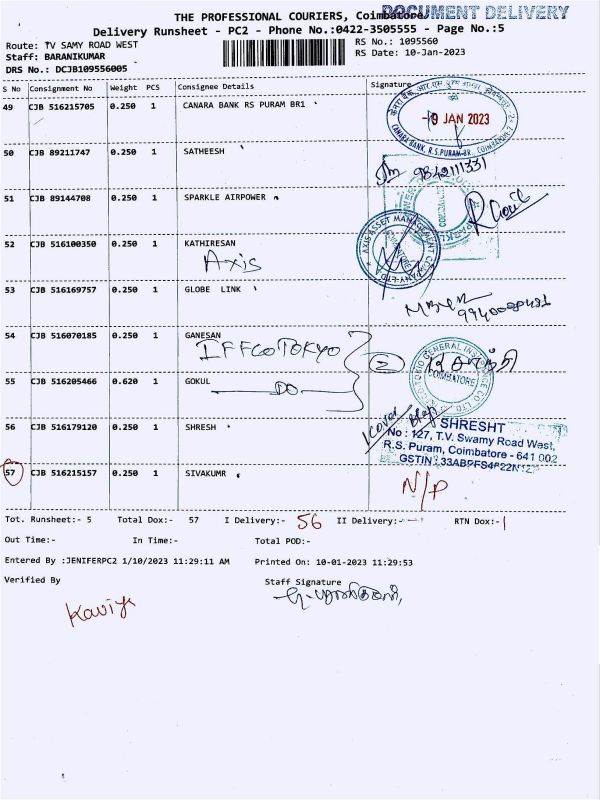 DOCUMENT DELIVERY
THE PROFESSIONAL COURIERS, Coimbatore
Delivery Runsheet - PC2 - Phone No.:0422-3505555 - Page No.:5
Route: TV SAMY ROAD WEST
RS No.: 1095560
Staff: BARANIKUMAR
RS Date: 10-Jan-2023
DRS No.: DCJB109556005
S No Consignment No Weight PCS Consignee Details Signature
49 CJB 516215705 0.250 1 CANARA BANK RS PURAM BR1
CANARA BANK, R.S.PURAM-BR, COIMBATORE
JAN 2023
50 CJB 89211747 0.250 1 SATHEESH
9842111331
51 CJB 89144708 0.250 1 SPARKLE AIRPOWER
52 CJB 516100350 0.250 1 KATHIRESAN
Axis
AXIS ASSET MANAGEMENT COMPANY LTD
53 CJB 516169757 0.250 1 GLOBE LINK
54 CJB 516070185 0.250 1 GANESAN
IFFCO TOKYO
2
GENERAL INSURANCE CO LTD
COIMBATORE
55 CJB 516205466 0.620 1 GOKUL
DO
56 CJB 516179120 0.250 1 SHRESH
1 cover
SHRESHT
No : 127, T.V. Swamy Road West,
R.S. Puram, Coimbatore - 641 002
57 CJB 516215157 0.250 1 SIVAKUMR
N/P
Tot. Runsheet:- 5 Total Dox:- 57 I Delivery:- 56 II Delivery:- RTN Dox:- 1
Out Time:- In Time:- Total POD:-
Entered By :JENIFERPC2 1/10/2023 11:29:11 AM Printed On: 10-01-2023 11:29:53
Verified By Staff Signature
Kaviya